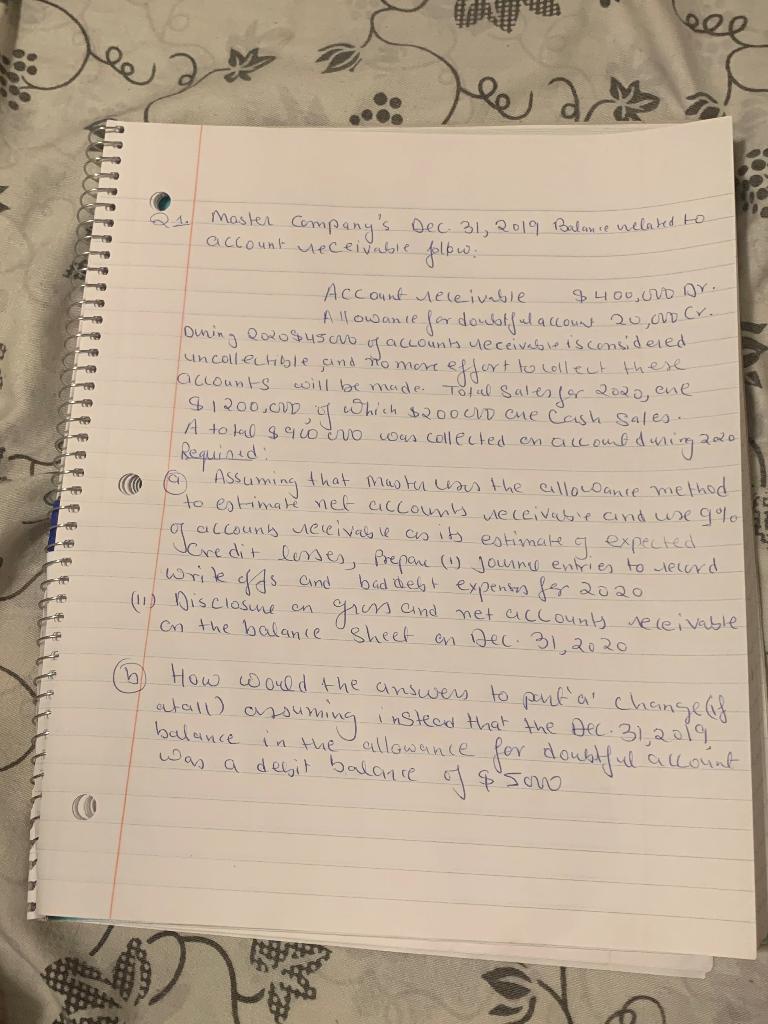 Q1. Master Company's Dec. 31, 2019 Balance related to
account receivable follow:
Account receivable $400,000 Dr.
Allowance for doubtful account 20,000 Cr.
During 2020 $45000 of accounts receivable is considered
uncollectible, and no more effort to collect these
accounts will be made. Total Sales for 2020, are
$1200,000, of which $200000 are Cash Sales.
A total $900000 was collected on account during 2020
Required:
(a) Assuming that Master uses the allowance method
to estimate net accounts receivable and use 9%
of accounts receivable as its estimate of expected
Credit losses, Prepare (i) Journal entries to record
write offs and bad debt expenses for 2020
(ii) Disclosure on gross and net accounts receivable
on the balance sheet on Dec. 31, 2020
(b) How would the answers to part 'a' change (if
at all) assuming instead that the Dec. 31, 2019,
balance in the allowance for doubtful account
was a debit balance of $5000